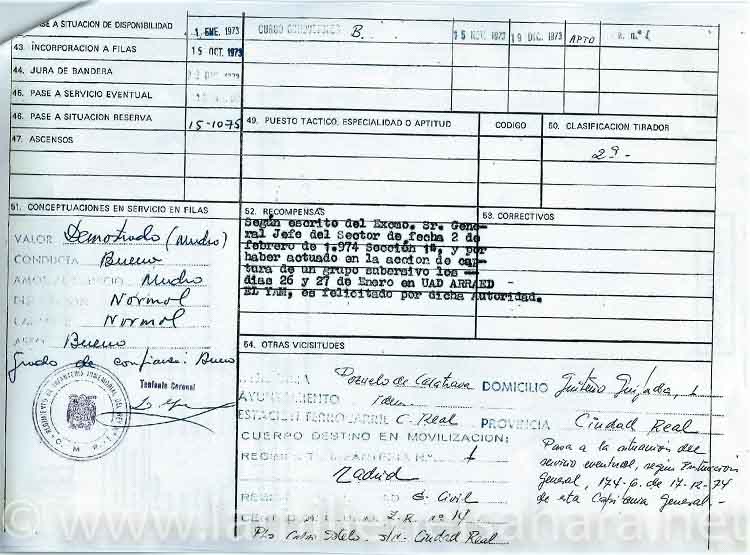 ASE A SITUACION DE DISPONIBILIDAD
1 ENE. 1973
CURSO
B.
15 NOV. 1973
19 DIC. 1973
APTO
43. INCORPORACION A FILAS
15 OCT. 1973
44. JURA DE BANDERA
45. PASE A SERVICIO EVENTUAL
46. PASE A SITUACION RESERVA
15-1075
47. ASCENSOS
49. PUESTO TACTICO, ESPECIALIDAD O APTITUD
CODIGO
50. CLASIFICACION TIRADOR
2ª-
51. CONCEPTUACIONES EN SERVICIO EN FILAS
VALOR Demostrado (mucho)
CONDUCTA Bueno
Mucho
Normal
Normal
Bueno
Grado de confianza: Bueno
Teniente Coronel
52. RECOMPENSAS
Según escrito del Excmo. Sr. Gene-
ral Jefe del Sector de fecha 2 de
febrero de 1.974 Sección 1ª, y por
haber actuado en la accion de cap-
tura de un grupo subersivo los --
dias 26 y 27 de Enero en UAD ARRAED
EL YAM, es felicitado por dicha Autoridad.
53. CORRECTIVOS
54. OTRAS VICISITUDES
Pozuelo de Calatrava DOMICILIO Quijada, 1
AYUNTAMIENTO Idem
ESTACION FERROCARRIL C. Real PROVINCIA Ciudad Real
CUERPO DESTINO EN MOVILIZACION:
1
Madrid
G. Civil
Z.R. nº 14
Pío Calvo Sotelo. s/n. Ciudad Real
Pasa a la situación del
servicio eventual, según Instrucción
General, 174-6. de 17-12-74
de esta Capitanía General.-